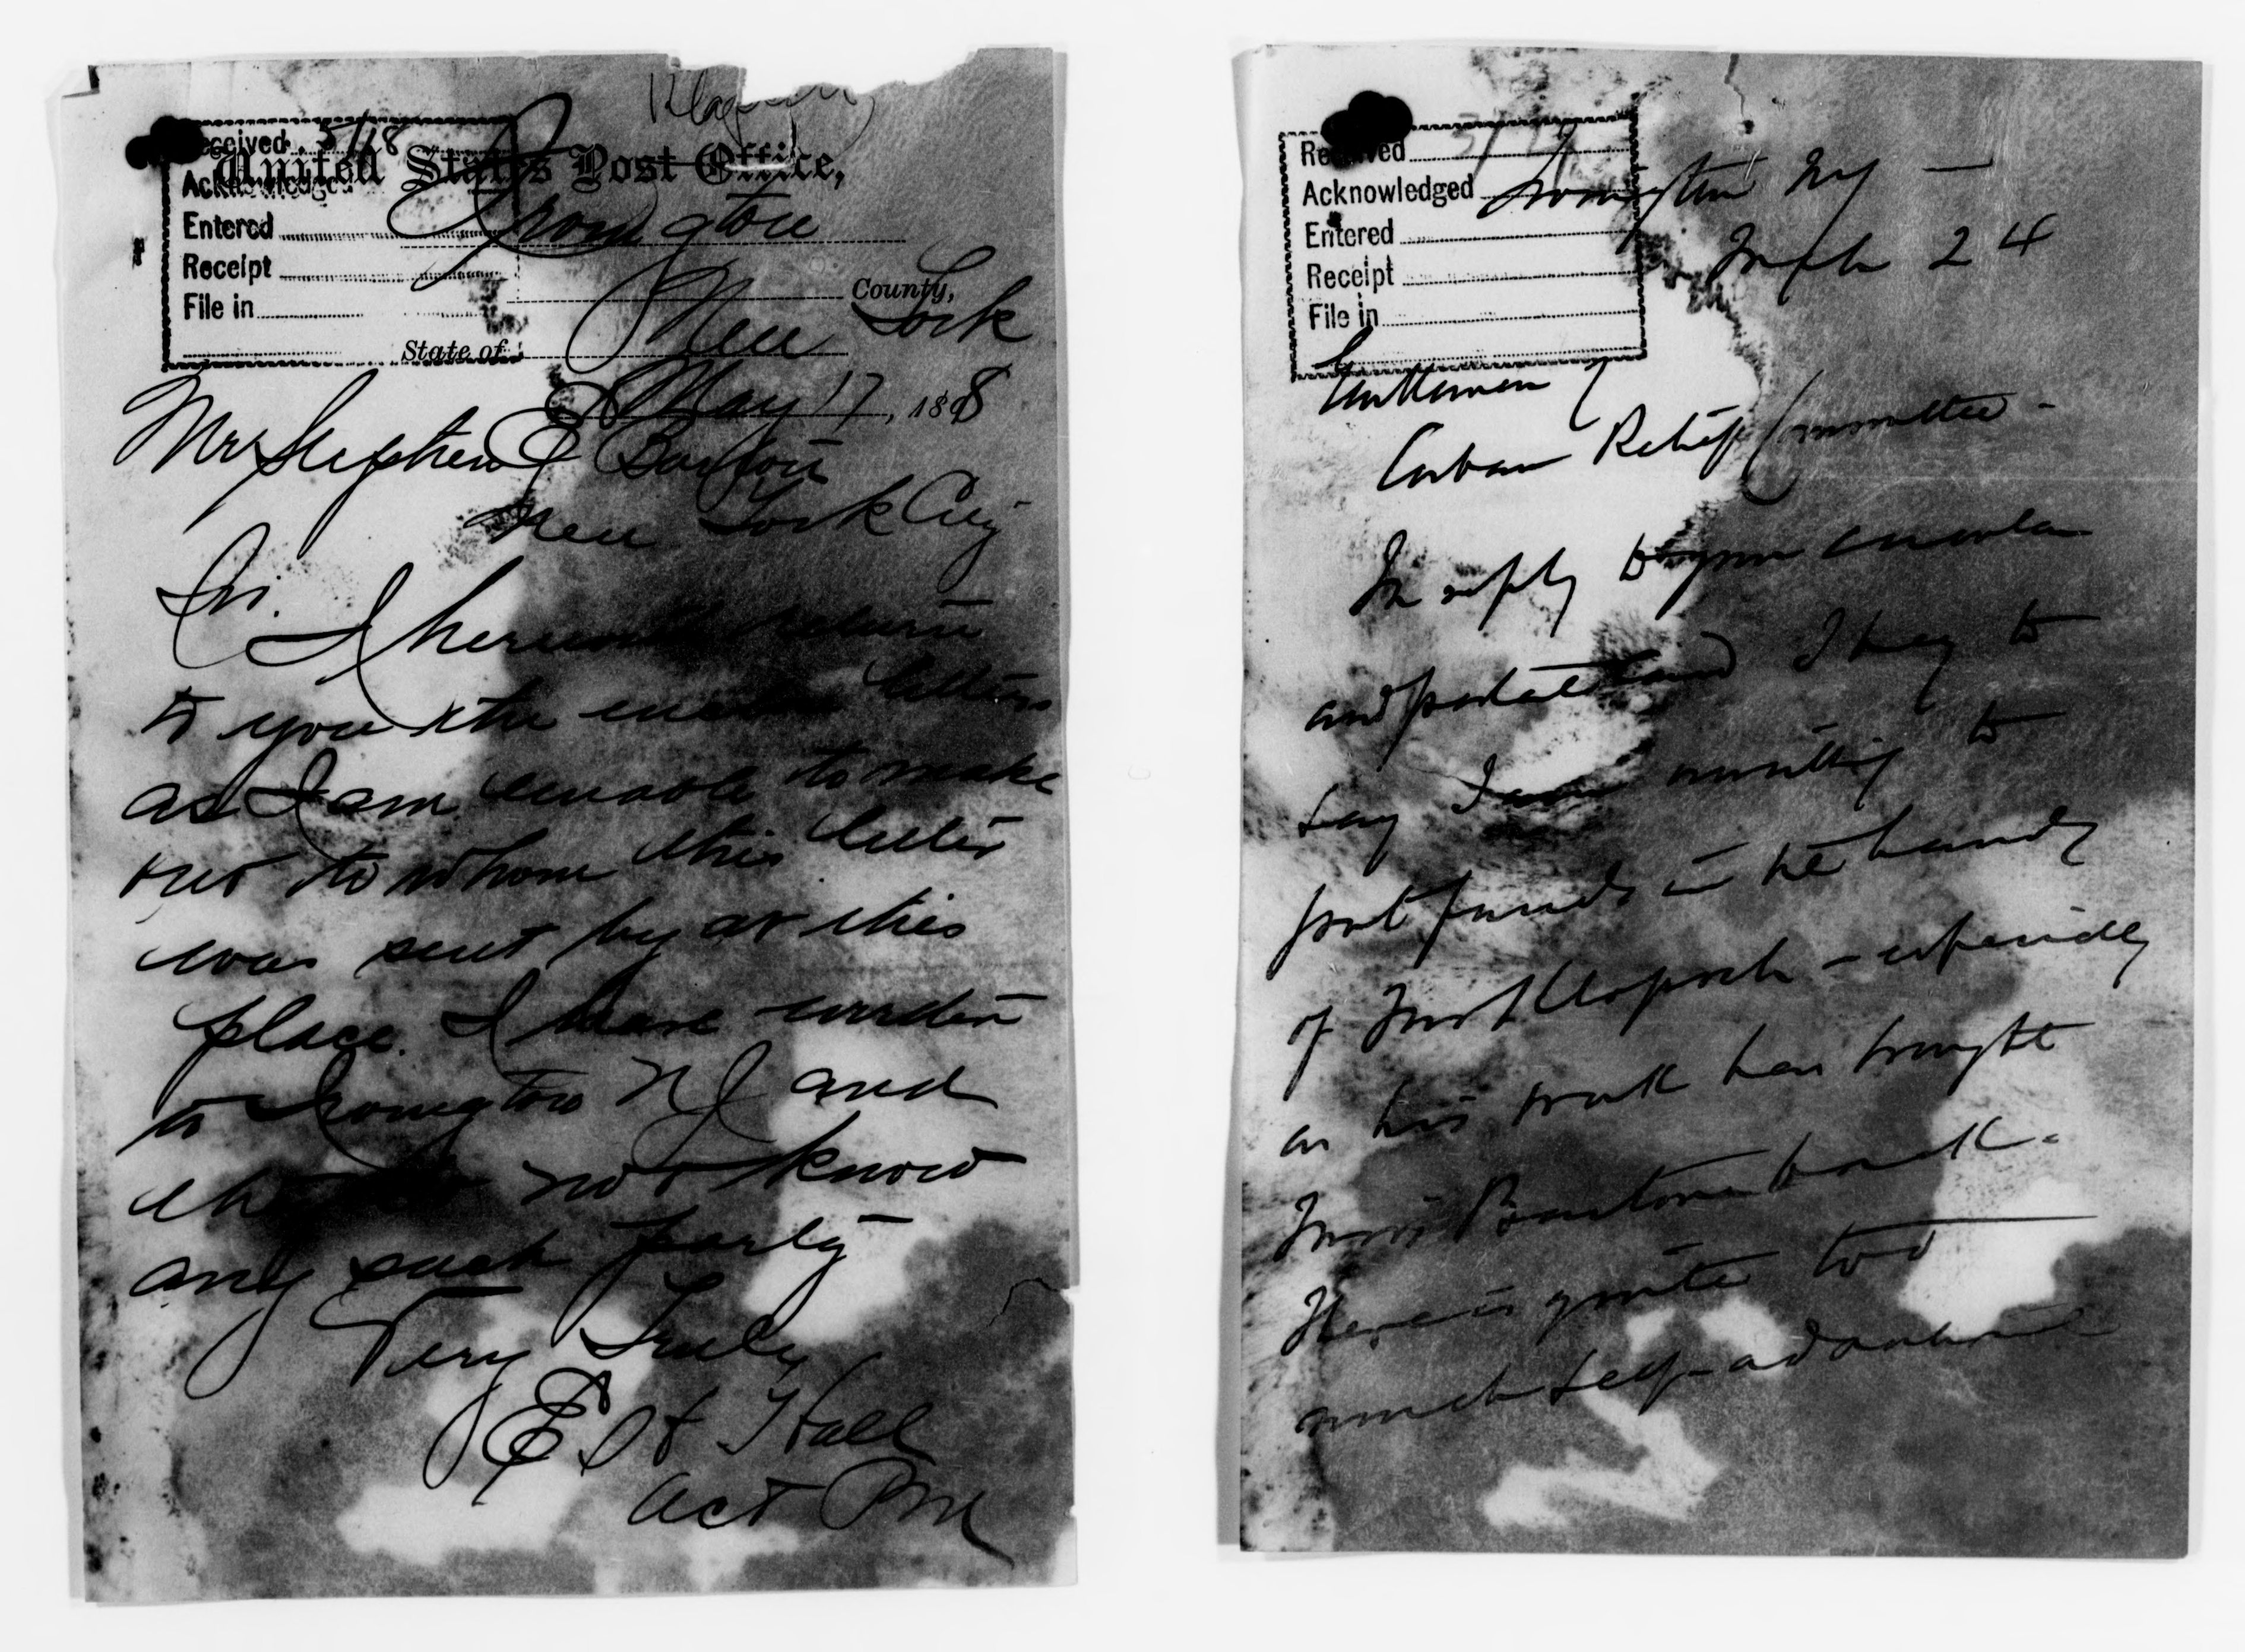 Klopsch
Received 5/18
Acknowledged
Entered
Receipt
File in
United States Post Office,
Irvington
County,
State of New York
May 17, 1898
Mr Stephen E Barton
New York City
Sir.
I herewith return
to you the letters
as I am unable to make
out to whom this letter
was sent by at this
place. I have written
to Irvington NJ and
the not know
any such party
Very Truly
E H Hall
Act PM
Received
Acknowledged
Entered
Receipt
File in
Irvington NY —
Mch 24
Gentlemen
Cuban Relief Committee -
In reply to your circular
and postal card I beg to
say I am unwilling to
put funds in the hands
of Klopsch - especially
as his work has brought
Miss Barton back -
There is quite too
much self-